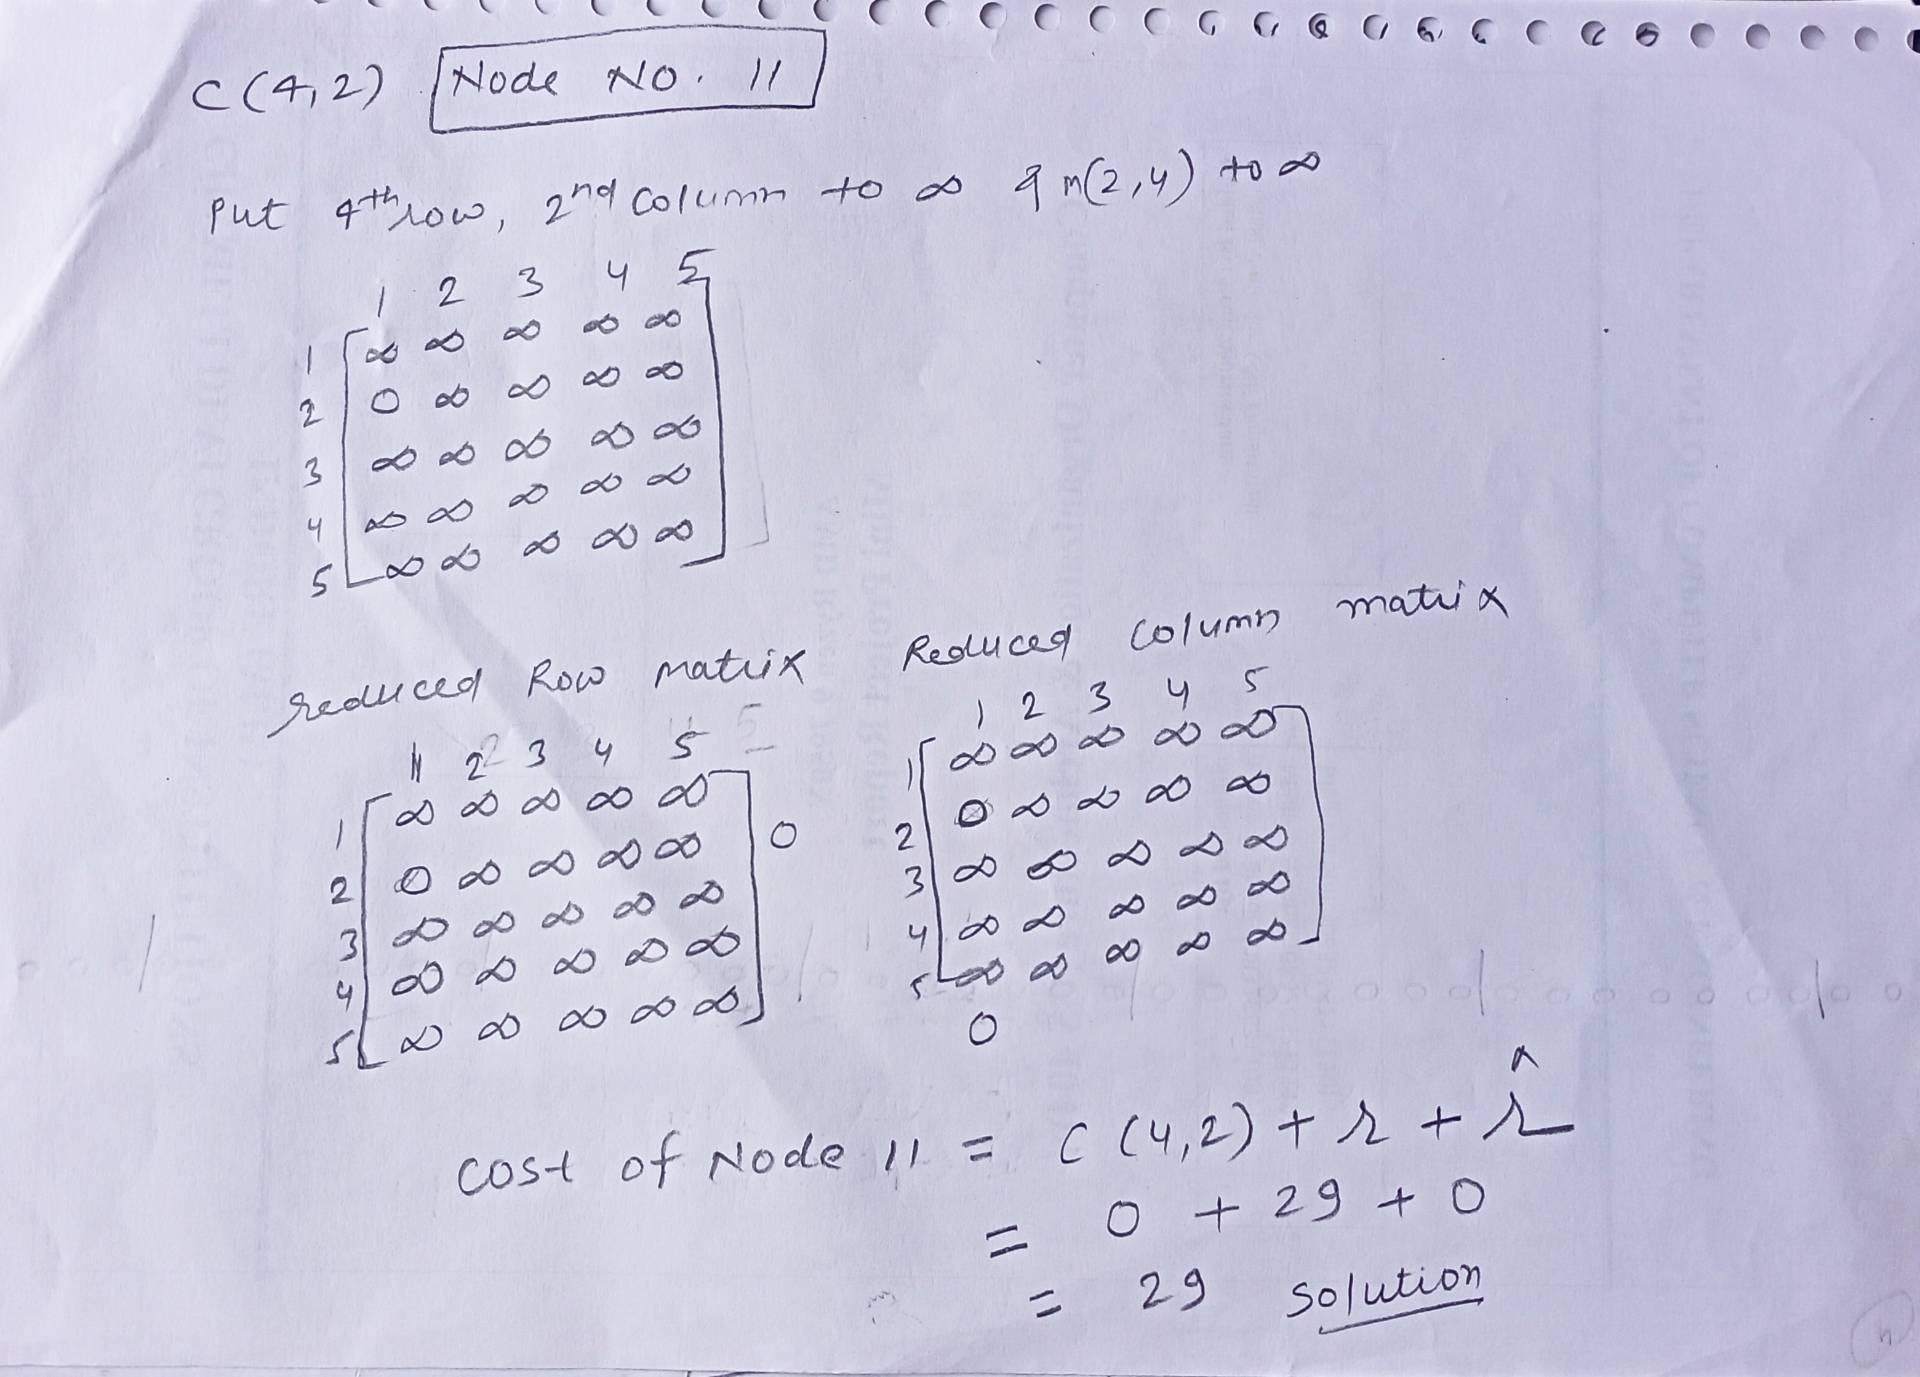 C(4,2) Node NO. 11
Put 4th row, 2nd Column to ∞ & m(2,4) to ∞
1 2 3 4 5
1 ∞ ∞ ∞ ∞ ∞
2 0 ∞ ∞ ∞ ∞
3 ∞ ∞ ∞ ∞ ∞
4 ∞ ∞ ∞ ∞ ∞
5 ∞ ∞ ∞ ∞ ∞
reduced Row matrix
1 2 3 4 5
1 ∞ ∞ ∞ ∞ ∞
2 0 ∞ ∞ ∞ ∞ 0
3 ∞ ∞ ∞ ∞ ∞
4 ∞ ∞ ∞ ∞ ∞
5 ∞ ∞ ∞ ∞ ∞
Reduced column matrix
1 2 3 4 5
1 ∞ ∞ ∞ ∞ ∞
2 0 ∞ ∞ ∞ ∞
3 ∞ ∞ ∞ ∞ ∞
4 ∞ ∞ ∞ ∞ ∞
5 ∞ ∞ ∞ ∞ ∞
0
cost of Node 11 = C(4,2) + r + r̂
= 0 + 29 + 0
= 29 solution